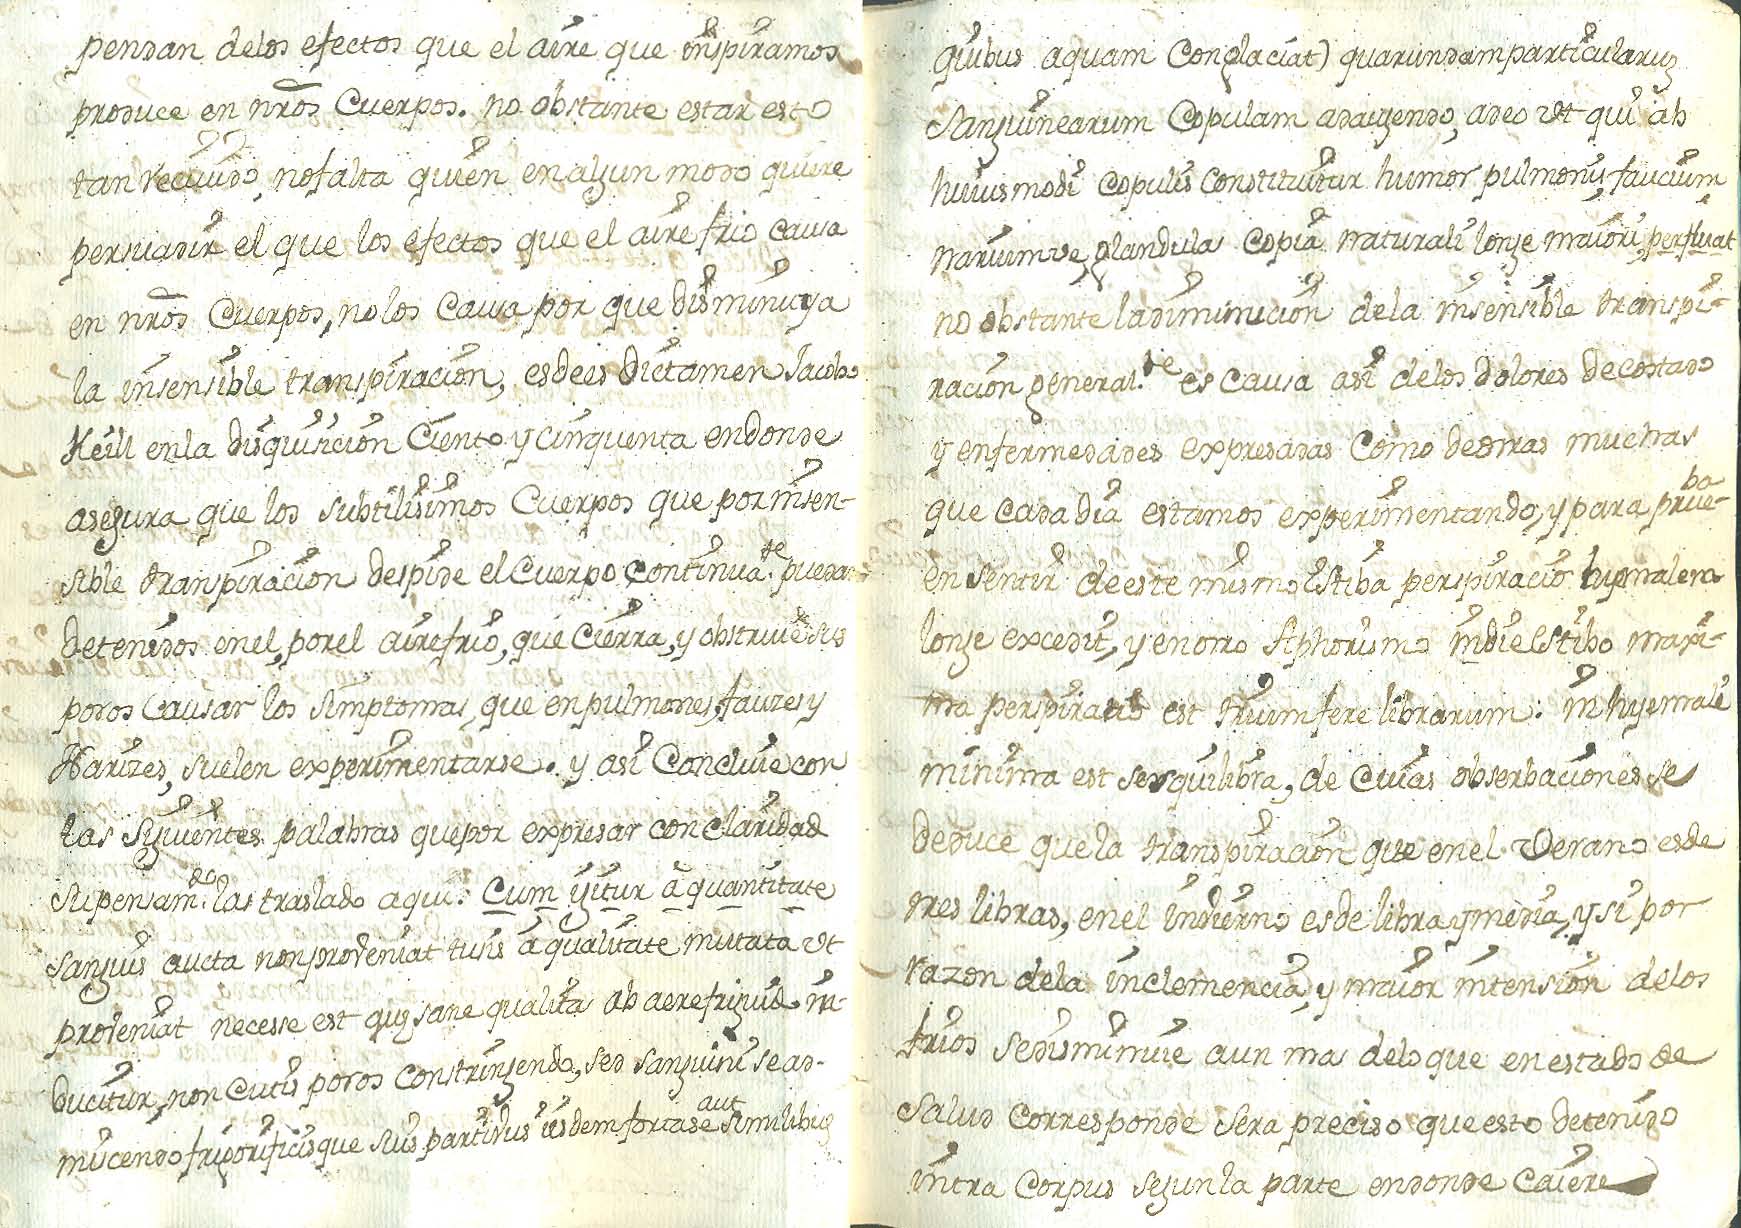 pendan delos efectos que el aire que inspiramos
produce en nrõs Cuerpos. no obstante estar esto
tan recivido, nofalta quien en algun modo quiere
persuadir el que los efectos que el aire frio causa
en nrõs Cuerpos, nolos Causa por que disminuya
la insensible transpiracion, esdees Dictamen Jacobo
Keill enla disquisicion Ciento y cinquenta endonde
asegura que los subtilisimos Cuerpos que por insen-
sible transpiracion despide el Cuerpo continua.te puedan
detenidos enel, porel airefrio, que Cierra, y obstruie sus
poros Causar los simptomas, que enpulmones, fauzes y
Narizes, suelen experimentarse. y asi Concluie con
las siguientes palabras quepor expresar con claridad
supensam.to las traslado aqui. Cum igitur à quantitate
sanguis aucta nonproveniat tusis à qualitate mutata vt
proveniat necesse est quę sane qualitas ab aere frigido in-
ducitur, non cutis poros constringendo, sed sanguini se ad-
miscendo frigorificisque suis partibus iisdem fortase aut similibus
quibus aquam Conglaciat) quarundam particularuz
sanguinearum Copulam adaugendo, adeo vt qui ab
huiusmodi copulis constituitur humor pulmonis, faucium
nariumve glandulas copia naturali longe maiori perfluat
no obstante ladiminucion dela insensible transpi-
racion general.te es causa asi delos dolores decostado
y enfermedades expresadas como deotras muchas
que cada dia estamos experimentando, y para prueba
en sentir de este mismo Estiba perspiracio hyemalem
longe excedit, y en otro Aphorismo indie Estibo maxi-
ma perspiratio est trium fere librarum. in hyemali
minima est sesquilibra, de cuias obserbaciones se
deduce quela transpiracion que enel verano esde
tres libras, enel indierno esde libra ymedia, y si por
razon dela inclemencia, y maior intension delos
frios sedisminuie aun mas deloque en estado de
salud corresponde sera preciso que esto detenido
intra Corpus segunla parte endonde Caiere